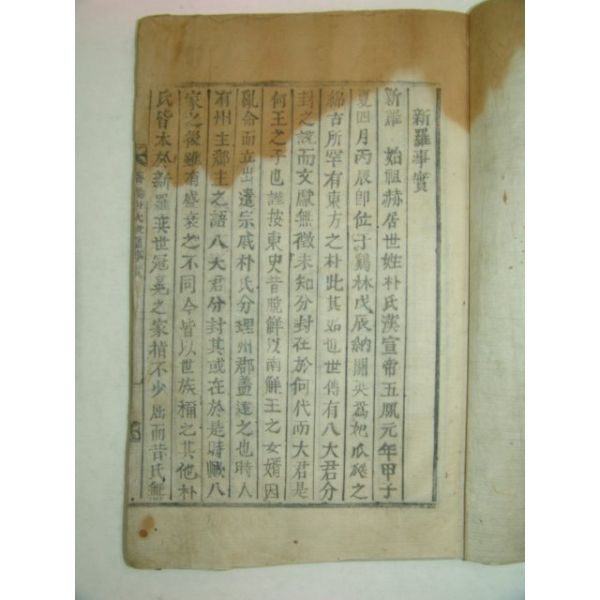 新羅事實
新羅 始祖赫居世姓朴氏漢宣帝五鳳元年甲子
夏四月丙辰即位于鷄林戊辰納閼英爲妃瓜瓞之
綿古所罕有東方之朴此其始也世傳有八大君分
封之說而文獻無徵未知分封在於何代而大君是
何王之子也謹按東史昔脫解以南解王之女婿因
亂命而立出遣宗戚朴氏分理州郡盖遠之也時人
有州主郡主之語八大君分封其或在於是時歟八
家之後雖有盛衰之不同今皆以世族稱之其他朴
氏皆本於新羅奕世冠冕之家指不少屈而昔氏無